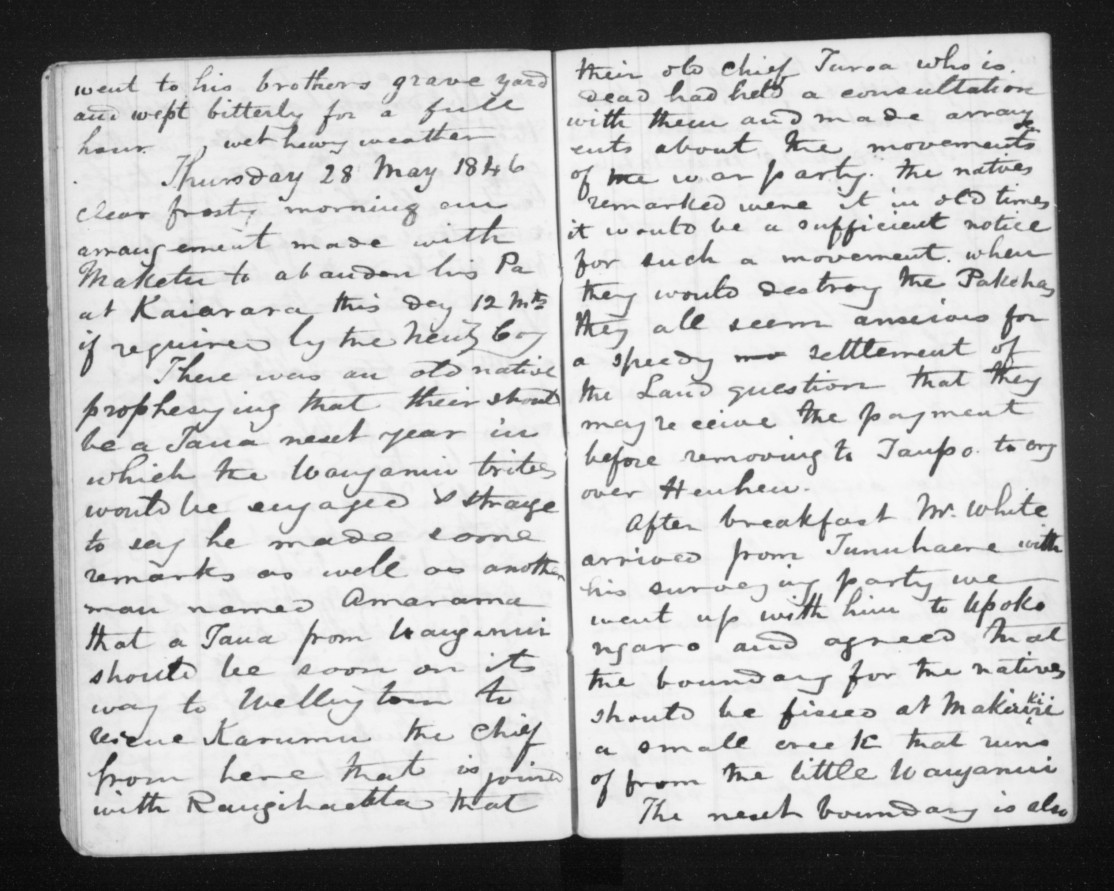 went to his brothers grave yard
and wept bitterly for a full
hour. wet heavy weather
Thursday 28 May 1846
clear frosty morning an
arrangement made with
Maketu to abandon his Pa
at Kaiarara this day 12 Mths
if required by the Newz Coy
There was an old native
prophesying that their should
be a Taua next year in
which the Wanganui tribes
would be engaged & strange
to say he made some
remarks as well as another
man named Amarama
that a Taua from Wanganui
should be soon on its
way to Wellington to
rescue Karumu the chief
from here that is joined
with Rangihaetta that
their old chief Turoa who is
dead had held a consultation
with them and made arrang
ents about the movements
of the war party. the natives
remarked were it in old times
it would be a sufficient notice
for such a movement. when
they would destroy the Pakehas
they all seem anxious for
a speedy settlement of
the Land question that they
may receive the payment
before removing to Taupo to cry
over Heuheu.
After breakfast Mr. White
arrived from Tunuhaere with
his surveying party we
went up with him to Upoko
ngaro and agreed that
the boundary for the natives
should be fixed at Makirikiri
a small creek that runs
of from the little Wanganui
The next boundary is also